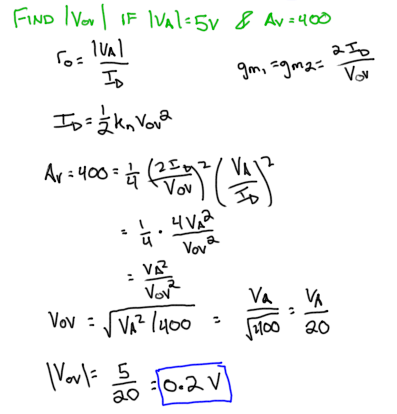 FIND |Vov| IF |VA|=5V & Av=400
ro = |VA| / ID
gm1 = gm2 = 2ID / Vov
ID = 1/2 kn Vov²
Av = 400 = 1/4 (2ID / Vov)² (VA / ID)²
= 1/4 · 4VA² / Vov²
= VA² / Vov²
Vov = √(VA² / 400) = VA / √400 = VA / 20
|Vov| = 5 / 20 = 0.2 V